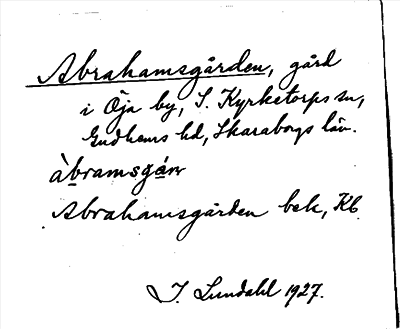 Abrahamsgården, gård
i Öja by, S. Kyrketorps sn,
Gudhems hd, Skaraborgs län.
àbramsgán
Abrahamsgården bek, Kb
I. Lundahl 1927.